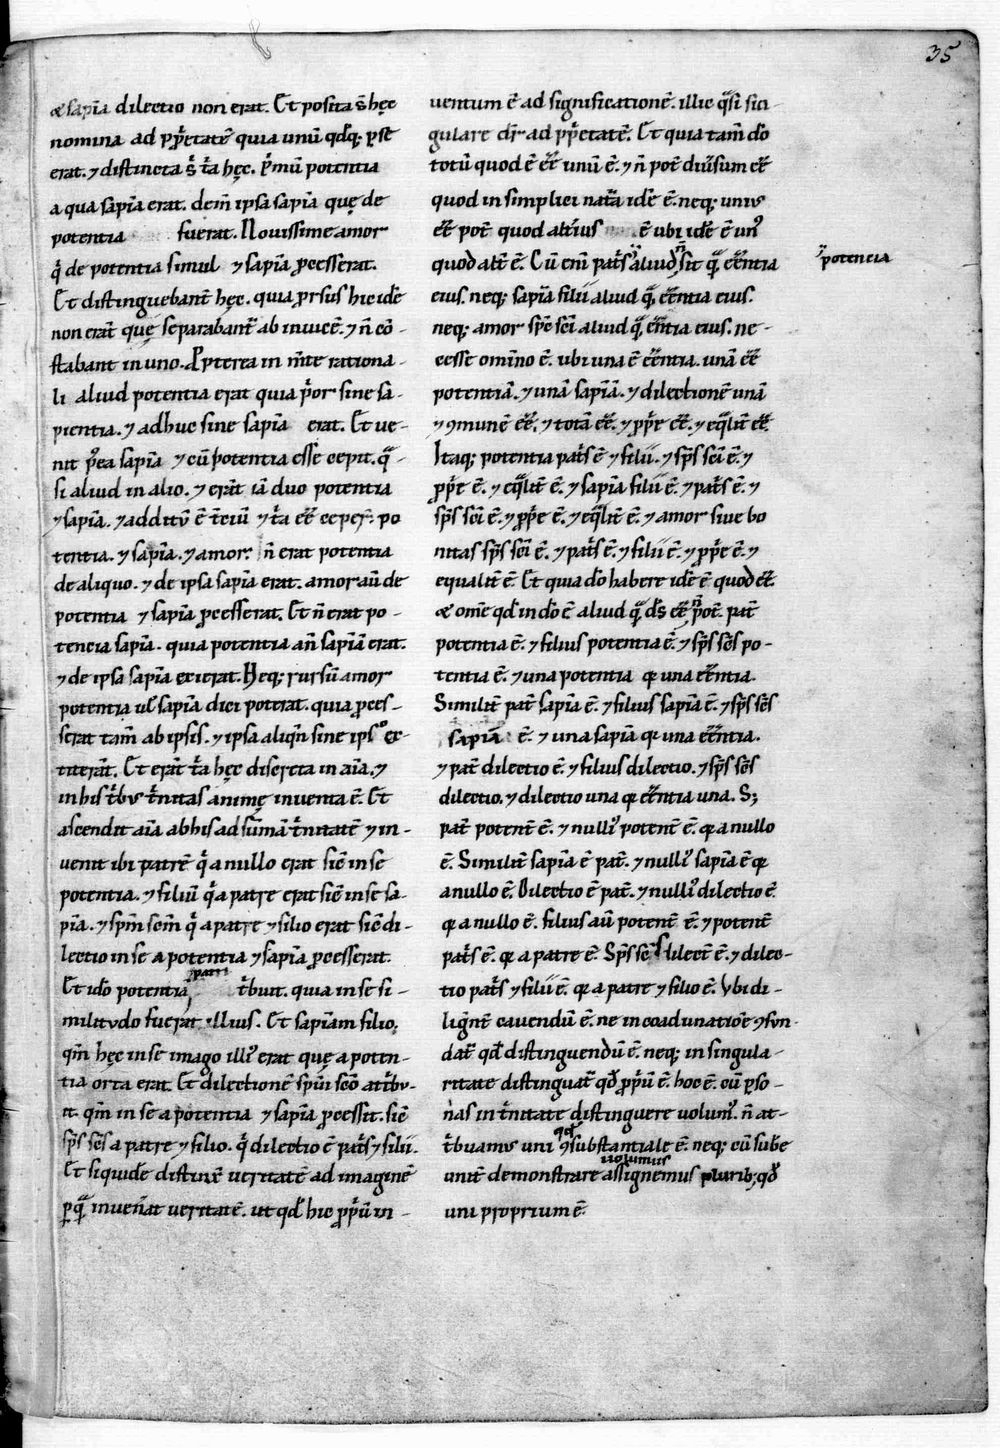 35
& sapīa dilectio non erat. Et posita s̄ hęc
nomina ad p̱p̄etatē quia unū qd̄q; p̱ se
erat. ⁊ distincta s̄ t̄a hęc. P̱mū potentia
a qua sapīa erat. dein̄ ipsa sapīa quę de
potentia fuerat. Nouissime amor
q̄ de potentia simul ⁊ sapīa p̱cesserat.
Et distinguebant̄ hęc. quia p̱rsus hic idē
non erāt quę separabant̄ ab inuicē. ⁊ n̄ cō-
stabant in uno. Pp̱terea in m̄te rationa-
li aliud potentia erat quia p̄or sine sa-
pientia. ⁊ adhuc sine sapīa erat. Et ue-
nit p̄ea sapīa ⁊ cū potentia esse cepit. q̄-
si aliud in alio. ⁊ erāt iā duo potentia
⁊ sapīa. ⁊ additū ē t̄ciū ⁊ t̄a ēē ceper̄. po
tentia. ⁊ sapīa. ⁊ amor. n̄ erat potentia
de aliquo. ⁊ de ipsa sapīa erat. amor aū de
potentia ⁊ sapīa p̱cesserat. Et n̄ erat po-
tencia sapīa. quia potentia an̄ sapīā erat.
⁊ de ipsa sapīa exierat. Neq; rursū amor
potentia ul̄ sapīa dici poterat. quia p̱ces-
serat tam̄ ab ipsis. ⁊ ipsa aliqn̄ sine ipso ex-
titerāt. Et erāt t̄a hęc discreta in aīa. ⁊
in his t̄bus t̄nitas animę inuenta ē. Et
ascendit aīa ab his ad sūmā t̄nitatē ⁊ in-
uenit ibi patrē q̄ a nullo erat sic̄ in se
potentia. ⁊ filiū q̄ a patre erat sic̄ in se sa-
pīa. ⁊ sp̄m scm̄ q̄ a patre ⁊ filio erat sic̄ di-
lectio in se a potentia ⁊ sapīa p̱cesserat.
patri
Et idō potentiā t̄buit. quia in se si-
militudo fuerat illius. Et sapīam filio;
qm̄ hęc in se imago illi᾽ erat quę a poten-
tia orta erat. Et dilectionē sp̄ui scō att̄bu-
it. qm̄ in se a potentia ⁊ sapīa p̱cessit. sic̄
sp̄s scs̄ a patre ⁊ filio. q̄ dilectio ē pat̄s ⁊ filii.
Et siquidē distinx̄ ueritatē ad imaginē
p̱ q̄ inuen̄at ueritatē. ut qd̄ hic p̱p̄ū in-
uentum ē ad significationē. illic q̄si sin-
gulare dr̄ ad p̱p̄etatē. Et quia tam̄ dō
totū quod ē ēē unū ē. ⁊ n̄ pot̄ diuisum ēē
quod in simplici nat̄a idē ē. neq; unus
ēē pot̄ quod alterius ē ubi idē ē un᾽
quod alt̄ ē. Cū eni pat̄s aliud n̄ sit q̄ ēēntia
potencia
eius. neq; sapīa filii aliud q̄ ēēntia eius.
neq; amor sp̄s sc̄i aliud q̄ ēēntia eius. ne-
cesse omīno ē. ubi una ē ēēntia. unā ēē
potentiā. ⁊ unā sapīā. ⁊ dilectionē unā
⁊ 9munē ēē. ⁊ totā ēē. ⁊ p̱p̄e ēē. ⁊ eq̄lit̄ ēē.
Itaq; potentia pat̄s ē ⁊ filii. ⁊ sp̄s sc̄i ē. ⁊
p̱p̄e ē. ⁊ eq̄lit̄ ē. ⁊ sapīa filii ē. ⁊ pat̄s ē. ⁊
sp̄s sc̄i ē. ⁊ p̱p̄e ē. ⁊ eq̄lit̄ ē. ⁊ amor siue bo
nitas sp̄s sc̄i ē. ⁊ pat̄s ē. ⁊ filii ē. ⁊ p̱p̄e ē. ⁊
equalit̄ ē. Et quia dō habere idē ē quod ēē.
& om̄e qd̄ in dō ē aliud q̄ ds̄ ēē n̄ pot̄. pat̄
potentia ē. ⁊ filius potentia ē. ⁊ sp̄s scs̄ po-
tentia ē. ⁊ una potentia q̱ una ēēntia.
Similit̄ pat̄ sapīa ē. ⁊ filius sapīa ē. ⁊ sp̄s scs̄
sapīa ē. ⁊ una sapīa q̱ una ēēntia.
⁊ pat̄ dilectio ē. ⁊ filius dilectio. ⁊ sp̄s scs̄
dilectio. ⁊ dilectio una q̱ ēēntia una. S;
pat̄ potens ē. ⁊ nulli᾽ potens ē. q̱ a nullo
ē. Similit̄ sapīa ē pat̄. ⁊ nulli᾽ sapīa ē q̱
a nullo ē. Dilectio ē pat̄. ⁊ nulli᾽ dilectio ē
q̱ a nullo ē. filius aū potens ē. ⁊ potens
pat̄s ē. q̱ a patre ē. Sp̄s scs̄ dilect̄ ē. ⁊ dilec-
tio pat̄s ⁊ filii ē. q̱ a patre ⁊ filio ē. Vbi di-
ligēnt̄ cauendū ē. ne in coadunatiōe 9fun-
dat̄ qd̄ distinguendū ē. neq; in singula-
ritate distinguat̄ qd̄ p̱p̄ū ē. hoc ē. cū p̱so-
nas in t̄nitate distinguere uolum᾽. n̄ at-
t̄buamus uni qd̄ 9substantiale ē. neq; cū subē
uolumus
unit̄ demonstrare assignemus plurib; qd̄
uni proprium ē.